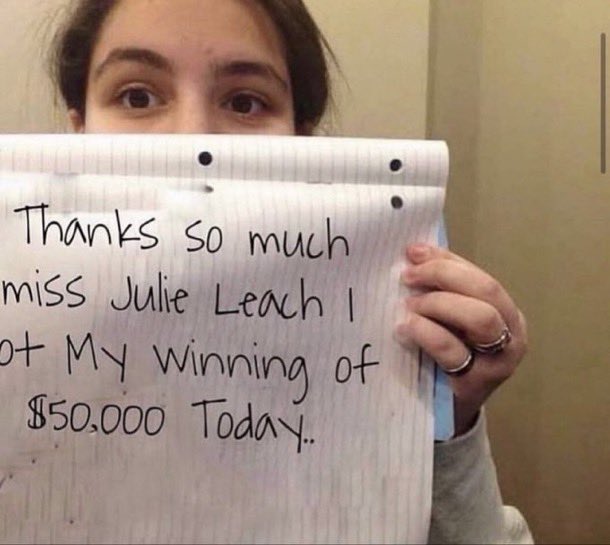 Thanks so much
miss Julie Leach I
ot My winning of
$50,000 Today..